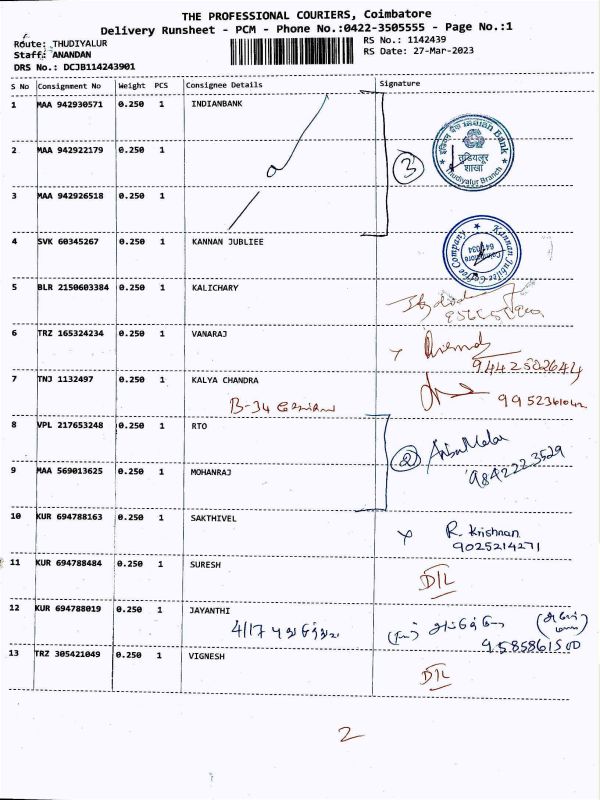 THE PROFESSIONAL COURIERS, Coimbatore
Delivery Runsheet - PCM - Phone No.:0422-3505555 - Page No.:1
Route: THUDIYALUR
Staff: ANANDAN
DRS No.: DCJB114243901
RS No.: 1142439
RS Date: 27-Mar-2023
S No Consignment No Weight PCS Consignee Details Signature
1 MAA 942930571 0.250 1 INDIANBANK
2 MAA 942922179 0.250 1
3
Indian Bank
तुडियलूर
शाखा
Thudiyalur Branch
3 MAA 942926518 0.250 1
4 SVK 60345267 0.250 1 KANNAN JUBLIEE
Kannan Jubilee Coffee Company
Coimbatore
641034
5 BLR 2150603384 0.250 1 KALICHARY
6 TRZ 165324234 0.250 1 VANARAJ
9442502644
7 TNJ 1132497 0.250 1 KALYA CHANDRA
B-34
9952361042
8 VPL 217653248 0.250 1 RTO
2
9842223529
9 MAA 569013625 0.250 1 MOHANRAJ
10 KUR 694788163 0.250 1 SAKTHIVEL
R. Krishnan
9025214271
11 KUR 694788484 0.250 1 SURESH
D/L
12 KUR 694788019 0.250 1 JAYANTHI
4/17
9585861500
13 TRZ 305421049 0.250 1 VIGNESH
D/L
2